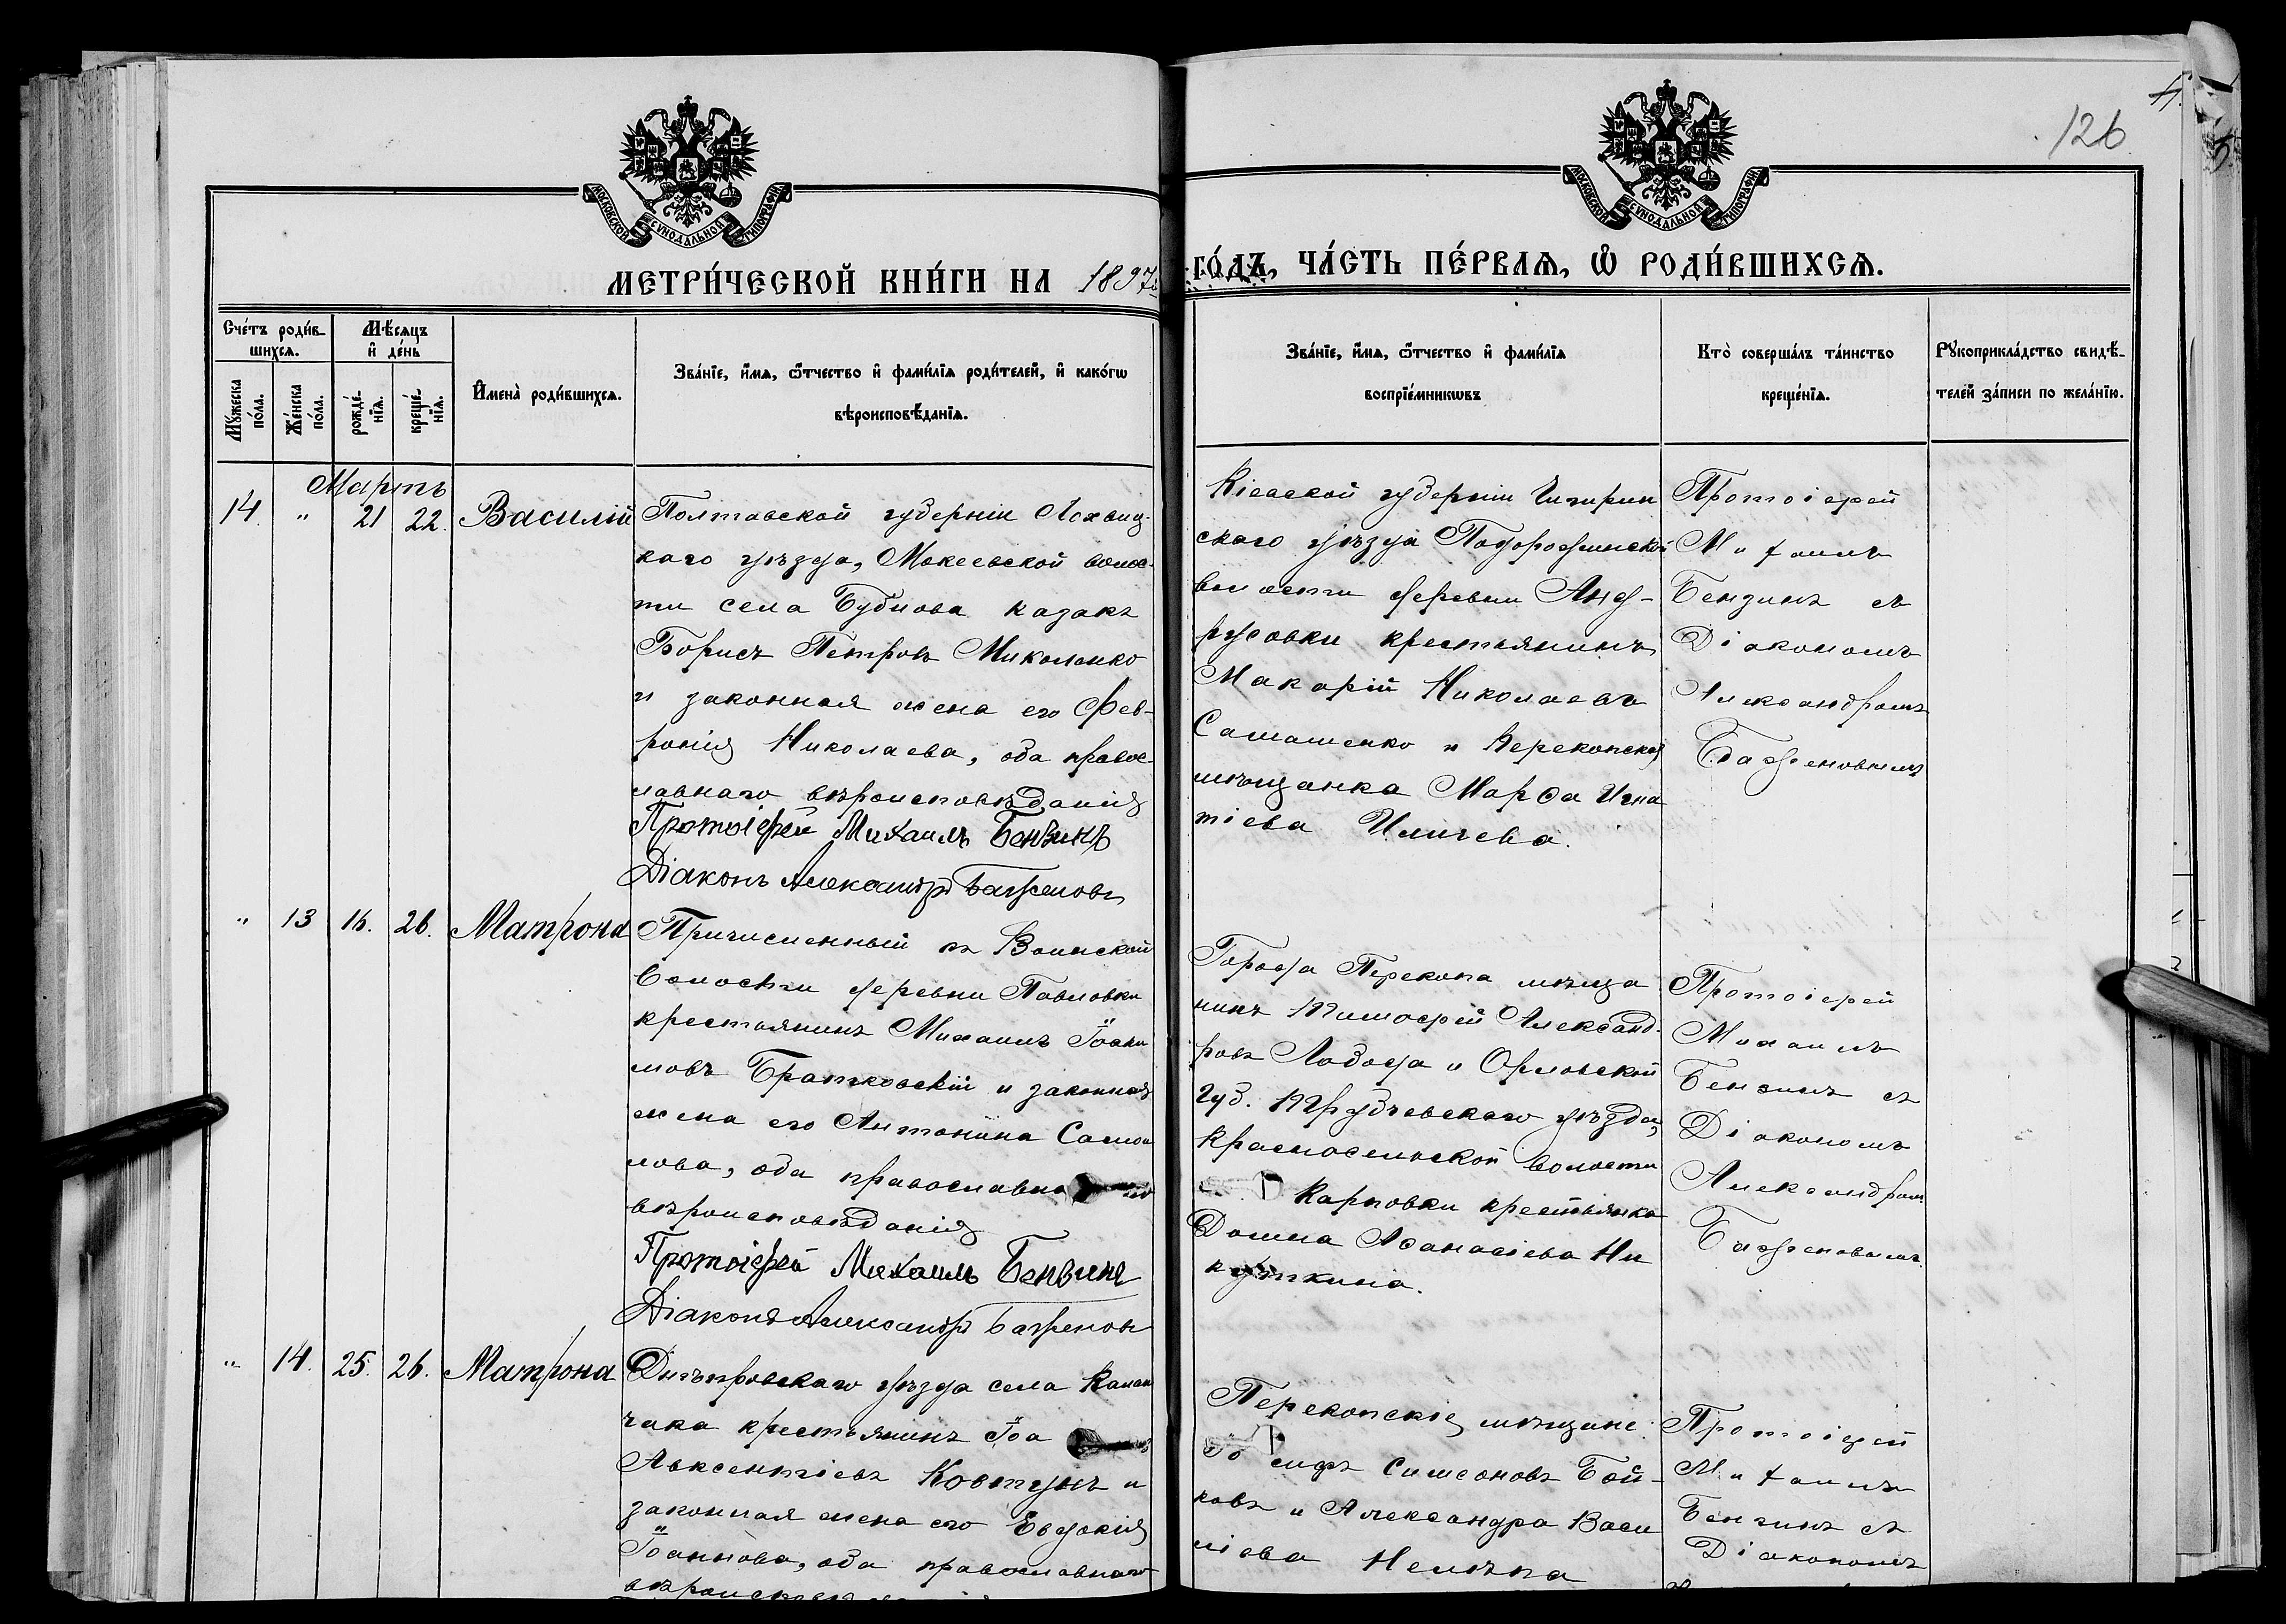 126
МОСКОВСКОЙ СѴНОДАЛЬНОЙ ТИПОГРАФІИ
МОСКОВСКОЙ СѴНОДАЛЬНОЙ ТИПОГРАФІИ
МЕТРИ́ЧЕСКОЙ КНИ́ГИ НА 1897й
ГО́ДЪ, ЧА́СТЬ ПЕ́РВАѦ, Ѡ҆ РОДИ́ВШИХСѦ.
Сче́тъ роди́в-
шихсѧ.
Мꙋ́жеска по́ла.
Же́нска по́ла.
Мѣ́сѧцъ
и҆ де́нь
рожде́нїѧ.
креще́нїѧ.
И҆мена̀ роди́вшихсѧ.
Зва́нїе, и҆́мѧ, ѻ҆́тчество и҆ фами́лїѧ роди́телей, и҆ како́гѡ
вѣроисповѣ́данїѧ.
Зва́нїе, и҆́мѧ, ѻ҆́тчество и҆ фами́лїѧ
воспрїе́мникѡвъ
Кто̀ соверша́лъ та́инство
креще́нїѧ.
Рꙋкоприкла́дство свидѣ́-
телей за́писи по жела́нїю.
Мартъ
14. " 21 22. Василій
Полтавской губерніи Лохвиц-
каго уѣзда, Мокеевской волос-
ти села Буднова казакъ
Борисъ Петровъ Миколенко
и законная жена его Фев-
ронія Николаева, оба правос-
лавнаго вѣроисповѣданія
Протоіерей Михаилъ Бензинъ
Діаконъ Александръ Баженовъ
Кіевской губерніи Чигирин
скаго уѣзда Подорожинской
волости деревни Анд-
русовки крестьянинъ
Макарій Николаевъ
Самашенко и Перекопская
мѣщанка Марѳа Игна
тіева Иличева.
Протоіерей
Михаилъ
Бензинъ съ
Діакономъ
Александромъ
Баженовымъ
" 13 16. 26. Матрона
Причисленный къ Воинской
волости деревни Павловки
крестьянинъ Михаилъ Іоаки
мовъ Братковскій и законная
жена его Антонина Самои
лова, оба православна
вѣроисповѣданія
Протоіерей Михаилъ Бензинъ
Діаконъ Александръ Баженовъ
Города Перекопа мѣща
нинъ Тимоѳей Александ-
ровъ Лобода и Орловской
губ. Трубчевскаго уѣзда,
Красносельской волости
Карповки крестьянка
Домна Аѳанасіева Ни
куткина.
Протоіерей
Михаилъ
Бензинъ съ
Діакономъ
Александромъ
Баженовымъ
" 14. 25. 26. Матрона
Днѣпровскаго уѣзда села Калан
чака крестьянинъ Іоа
Авксентіевъ Ковтунъ и
законная жена его Евдокія
Іоаннова, оба православнаго
Перекопскіе мѣщане
Іосифъ Симеоновъ Бой-
ковъ и Александра Васи
ліева Нелѣпа
Протоіерей
Михаилъ
Бензинъ съ
Діакономъ